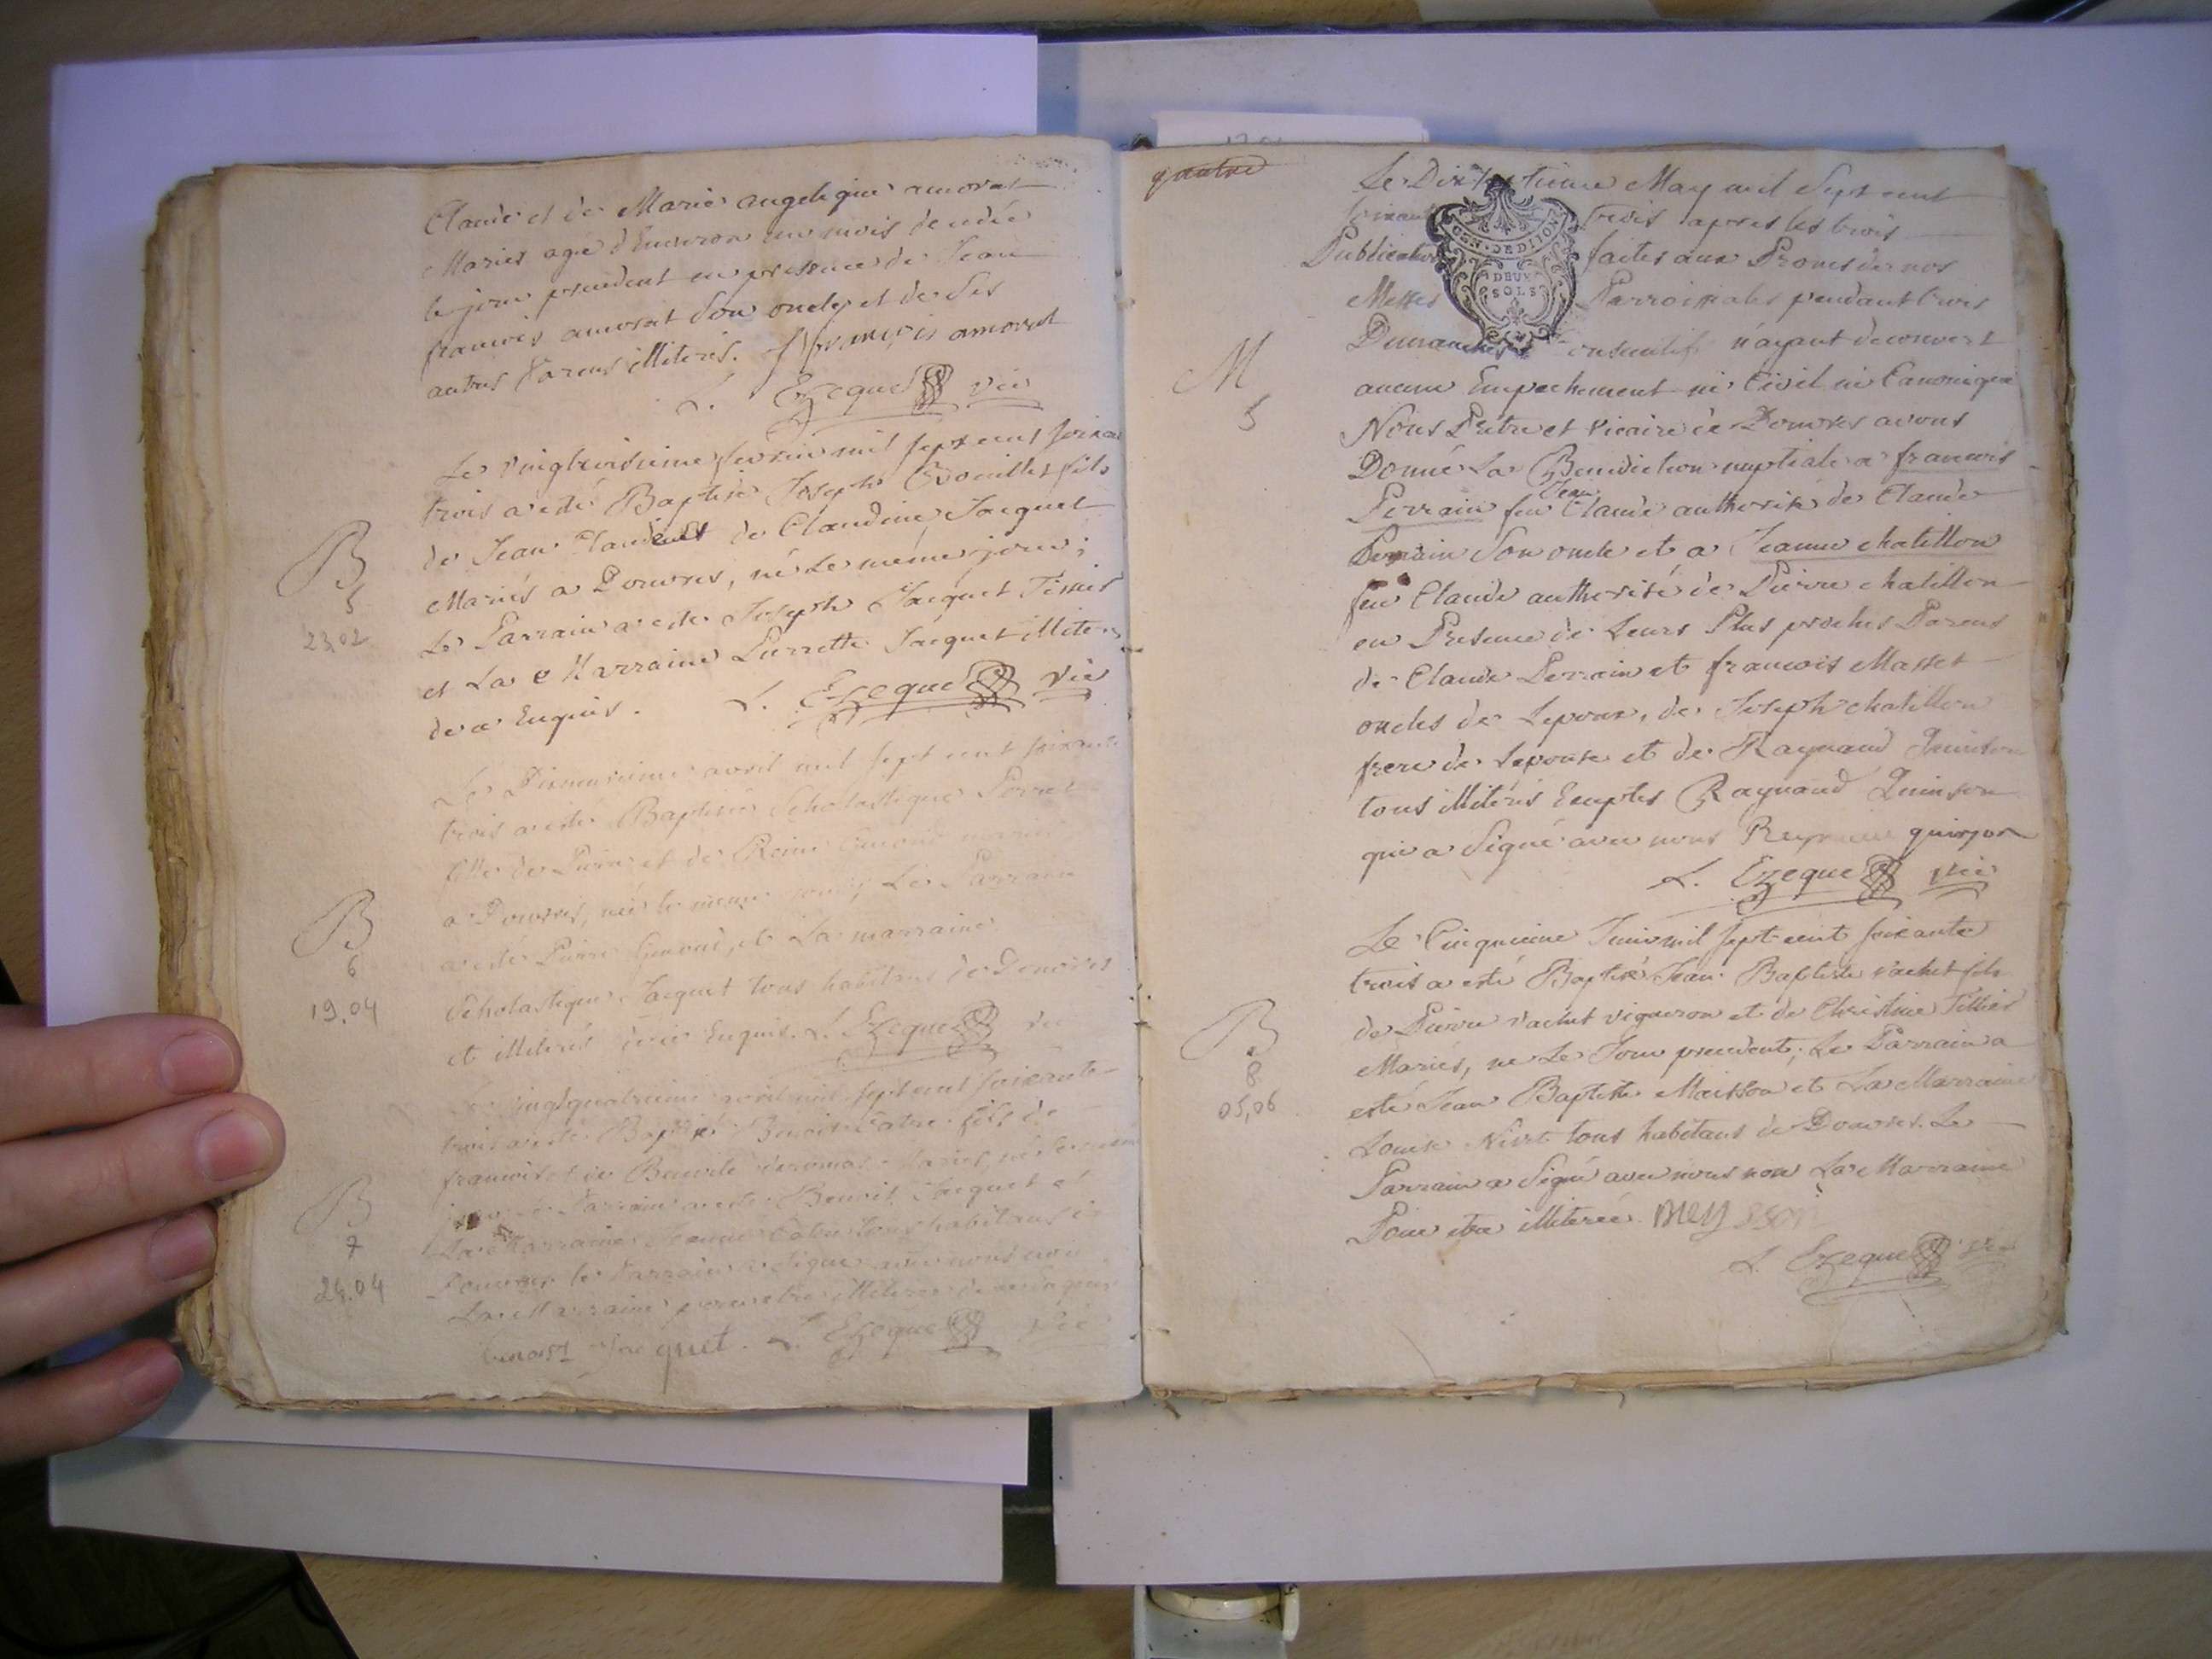 Claude et de Marie angelique amorat
Maries agé d'Environ un mois decedée
le jour precedent en presence de Jean
francois amorat son oncle et de ses
autres Parens illiterés. J francois amorat
L. Ezeque vic
Le vingtroisieme fevrier mil sept cent soixan
trois a esté Baptisé Joseph fils
de Jean Claude et de Claudine Jacquet
Mariés a Douvres, né Le même jour;
Le Parrain a este Joseph Jacquet Tissier
et La Marraine Pierrette Jacquet illite
de ce Enquis. L. Ezeque vic
B
5
23,02
Le Dixneuvieme avril mil sept cent soixante
trois a esté Baptisée Scholastique Perret
fille de Pierre et de Reine mariés
a Douvres, née le meme jour; Le Parrain
a esté Pierre et La marraine
Scholastique Jacquet tous habitans de Douvres
et illiterés de ce Enquis. L. Ezeque vic
B
6
19.04
Le vingtquatrieme avril mil sept cent soixante
trois a este Baptisé Benoit fils de
francois et de Benoite Mariés, né le meme
jour Le Parrain a este Benoit Jacquet et
La Marraine Jeanne tous habitans de
Douvres le Parrain a Signé avec nous non
La Marraine pour etre illiteree de ce enquise
benoist Jacquet. L. Ezeque vic
B
7
24.04
quatre
Le Dixseptieme May mil Sept cent
soixante trois apres les trois
Publications faites aux Prones de nos
Messes Parroissiales pendant trois
Dimanches consecutifs n'ayant decouvert
aucun Empechement ni Civil ni Canonique
Nous Prêtre et vicaire de Douvres avons
Donné La Benediction nuptiale a francois
Jean
Perrain feu Claude authorisé de Claude
Perrain Son oncle et a Jeanne chatillon
feu Claude authorisée de Pierre chatillon
en Presence de Leurs Plus proches Parens
de Claude Perrain et francois Masset
oncles de Lepoux, de Joseph chatillon
frere de Lepouse et de Raynaud Quinson
tous illiterés Exceptes Raynaud Quinson
qui a Signé avec nous quinson
L. Ezeque vic
M
5
Le Cinquieme Juin mil sept cent soixante
trois a esté Baptisé Jean Baptiste vachet fils
de Pierre vachet vigneron et de Christine Tillier
Mariés, ne Le Jour precedent; Le Parrain a
esté Jean Baptiste Maisson et La Marraine
Louise Nivet tous habitans de Douvres. Le
Parrain a Signé avec nous non La Marraine
Pour etre illiterée. Meysson
L. Ezeque vic
B
8
05,06
GEN. DE DIJON
DEUX
SOLS